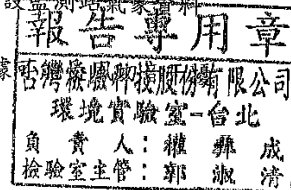 設監測站氣象資料
報告專用章
據
台灣檢驗科技股份有限公司
環境實驗室-台北
負責人：
檢驗室主管：郭淑清